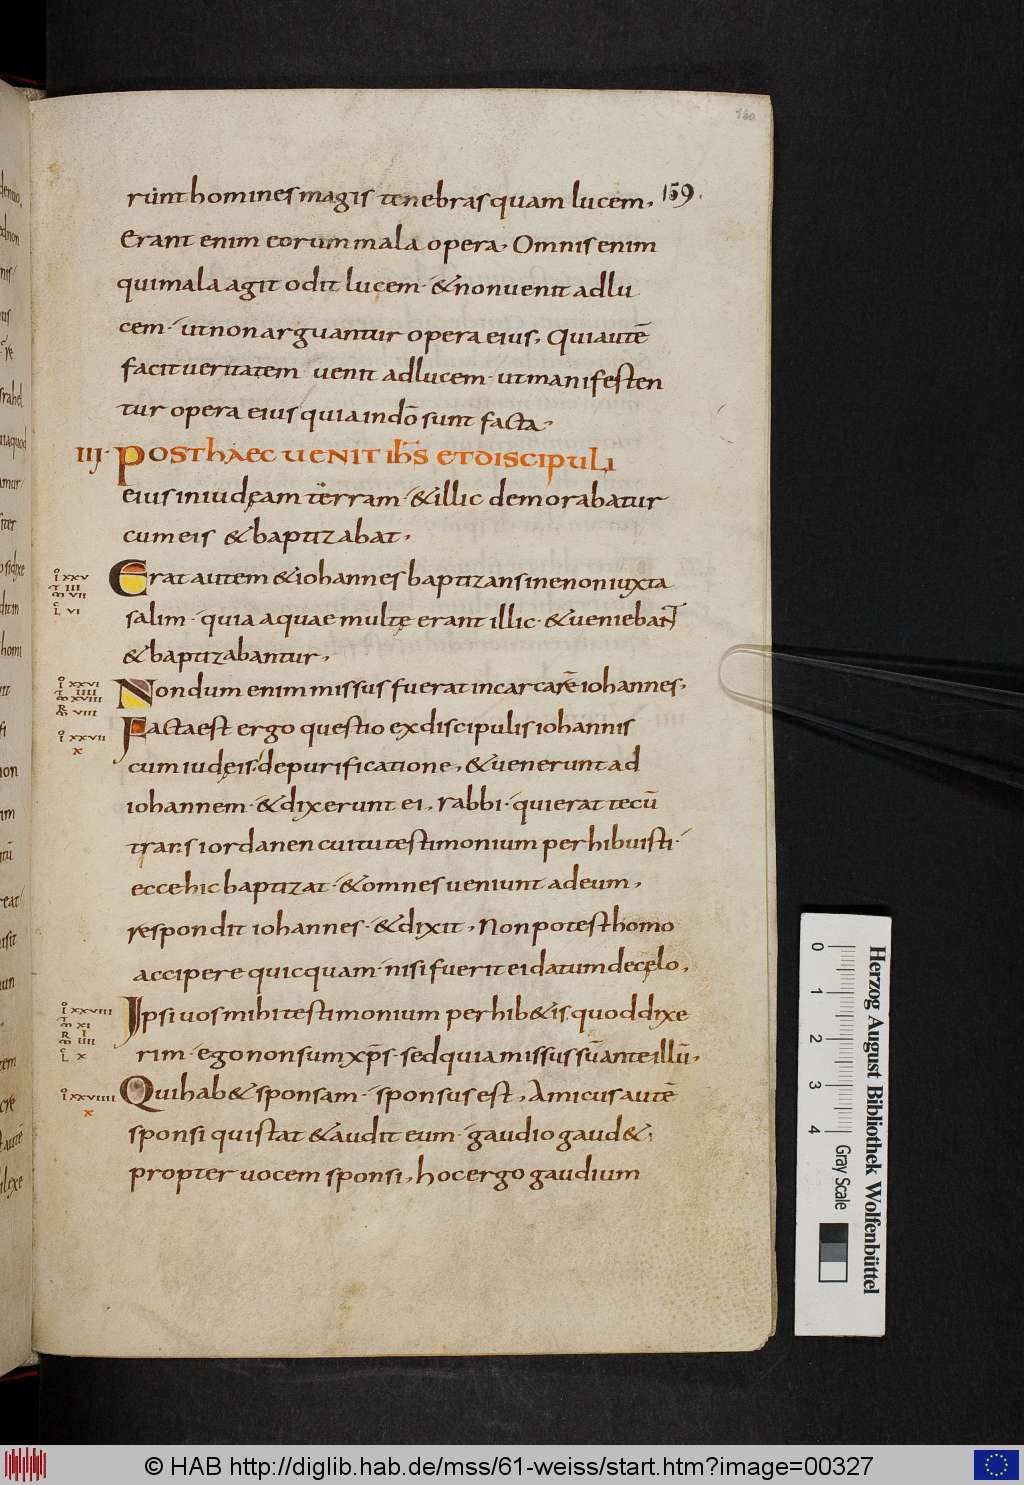 160
159.
rúnt homines magis tenebras quam lucem,
Erant enim eorum mala opera, Omnis enim
qui mala agit odit lucem · & non uenit ad lu
cem · ut non arguantur opera eius, Qui autē
facit ueritatem uenit ad lucem · ut manifesten
tur opera eius quia in dō sunt facta,
III · POST HAEC UENIT IHS ET DISCIPULI
eius in iudęam terram · & illic demorabatur
cum eis & baptizabat,
Erat autem & iohannes baptizans in enon iuxta
salim · quia aquae multę erant illic · & uenieban̄t
& baptizabantur,
Nondum enim missus fuerat in carcarē iohannes,
Facta est ergo questio ex discipulis iohannis
cum iudęis · de purificatione, & uenerunt ad
iohannem · & dixerunt ei, rabbi · qui erat tecū
trans iordanen cui tu testimonium perhibuisti ·
ecce hic baptizat · & omnes ueniunt ad eum,
respondit iohannes · & dixit, Non potest homo
accipere quicquam · nisi fuerit ei datum de cęlo,
Ipsi uos mihi testimonium perhib&is quod dixe
rim · ego non sum xp̄s · sed quia missus sū ante illū,
Qui hab& sponsam · sponsus est, Amicus autē
sponsi qui stat & audit eum · gaudio gaud&,
propter uocem sponsi, hoc ergo gaudium
I XXV
III
VII
VI
I XXVI
IIII
XVIII
VIII
I XXVII
X
I XXVIII
XI
I
IIII
X
I XXVIIII
X
0 1 2 3 4
Gray Scale
Herzog August Bibliothek Wolfenbüttel
© HAB http://diglib.hab.de/mss/61-weiss/start.htm?image=00327